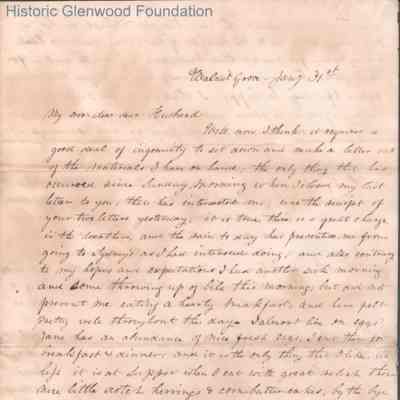 Historic Glenwood Foundation
Walnut Grove Jany 31st
My own dear dear Husband
Well now I think it requires a
good deal of ingenuity to set down and make a letter out
of the materials I have on hand, the only thing that has
occurred since Sunday morning when I closed my last
letter to you, that has interested me, was the receipt of
your two letters yesterday, it is true there is a great change
in the weather, and the rain to day has prevented me from
going to as I had intended doing, and also contrary
to my hopes and expectations I had another sick morning
and some throwing up of bile this morning, but did not
prevent me eating a hearty breakfast, and have felt
pretty well throughout the day. I almost live on eggs
Jane has an abundance of nice fresh eggs, I use them for
breakfast & dinner, and it is the only thing that I take,
it is at supper when I eat with great relish
little scotch herrings & corn batter cakes, by the bye